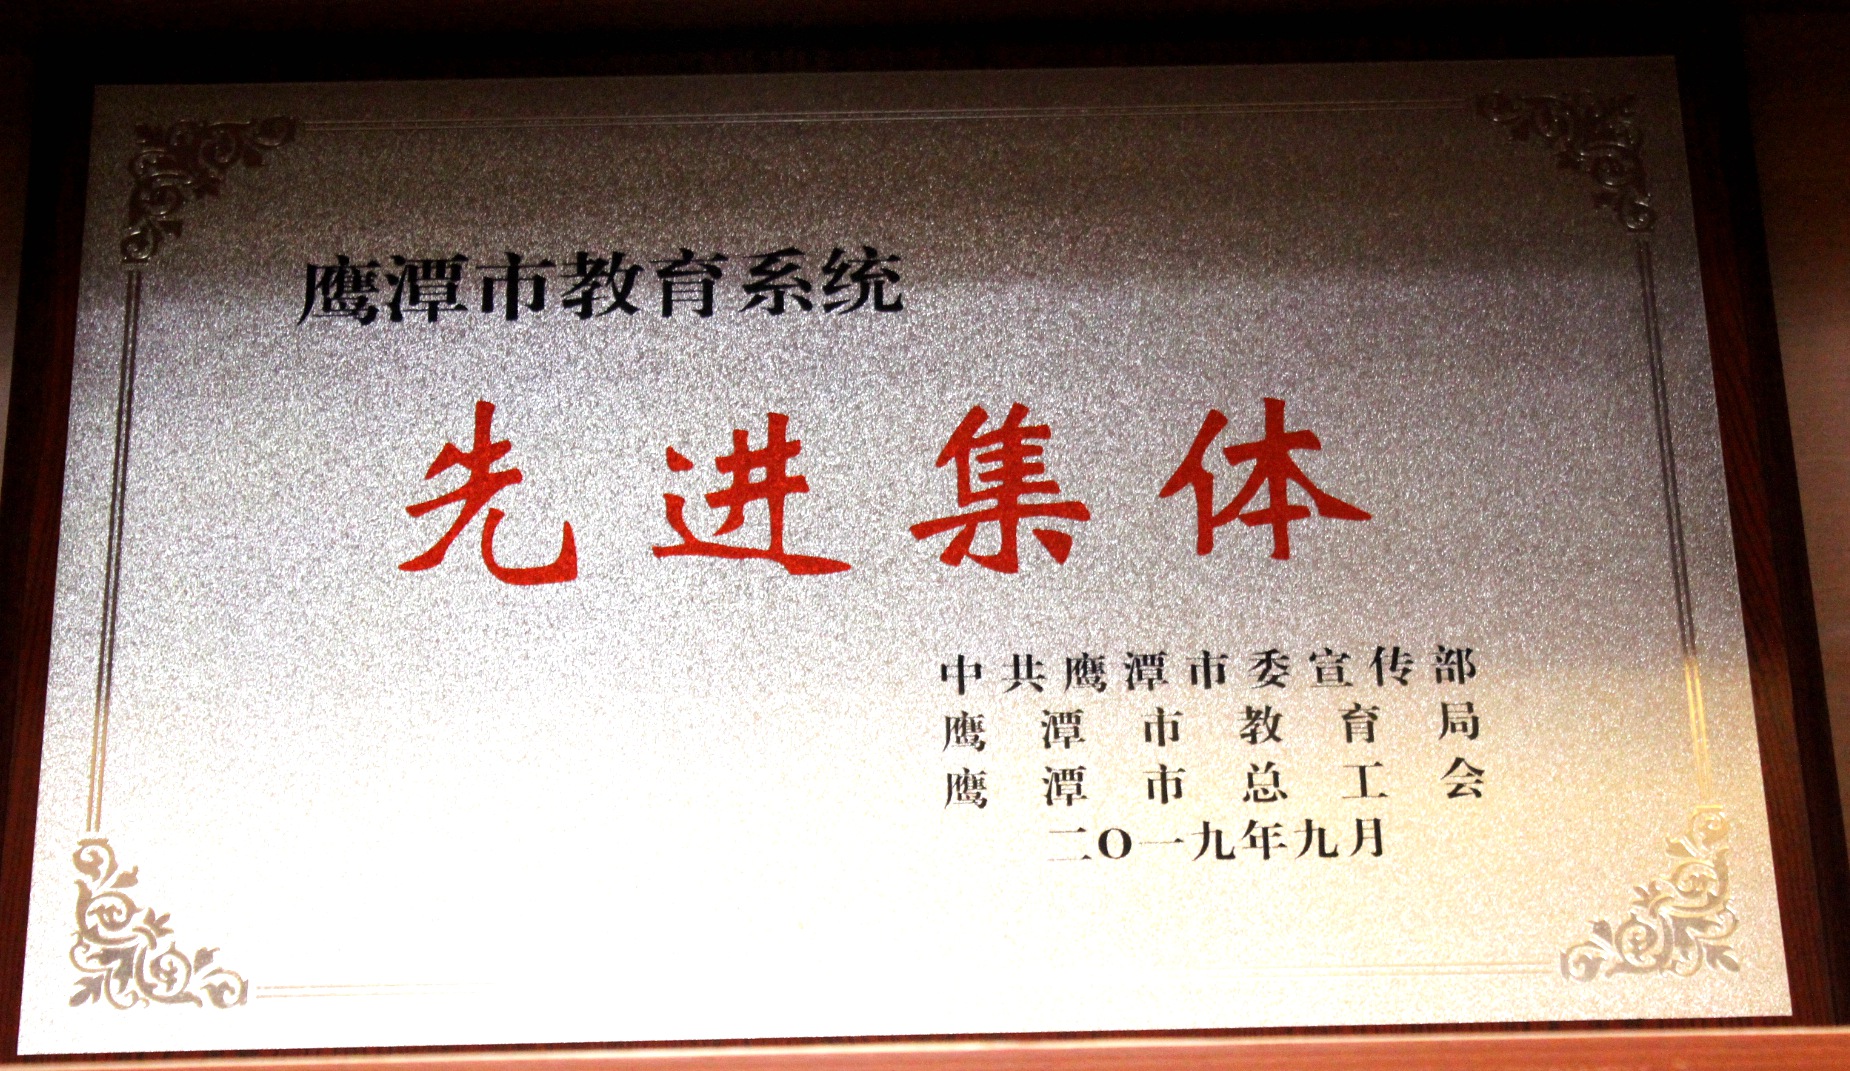 鹰潭市教育系统
先进集体
中共鹰潭市委宣传部
鹰潭市教育局
鹰潭市总工会
二O一九年九月